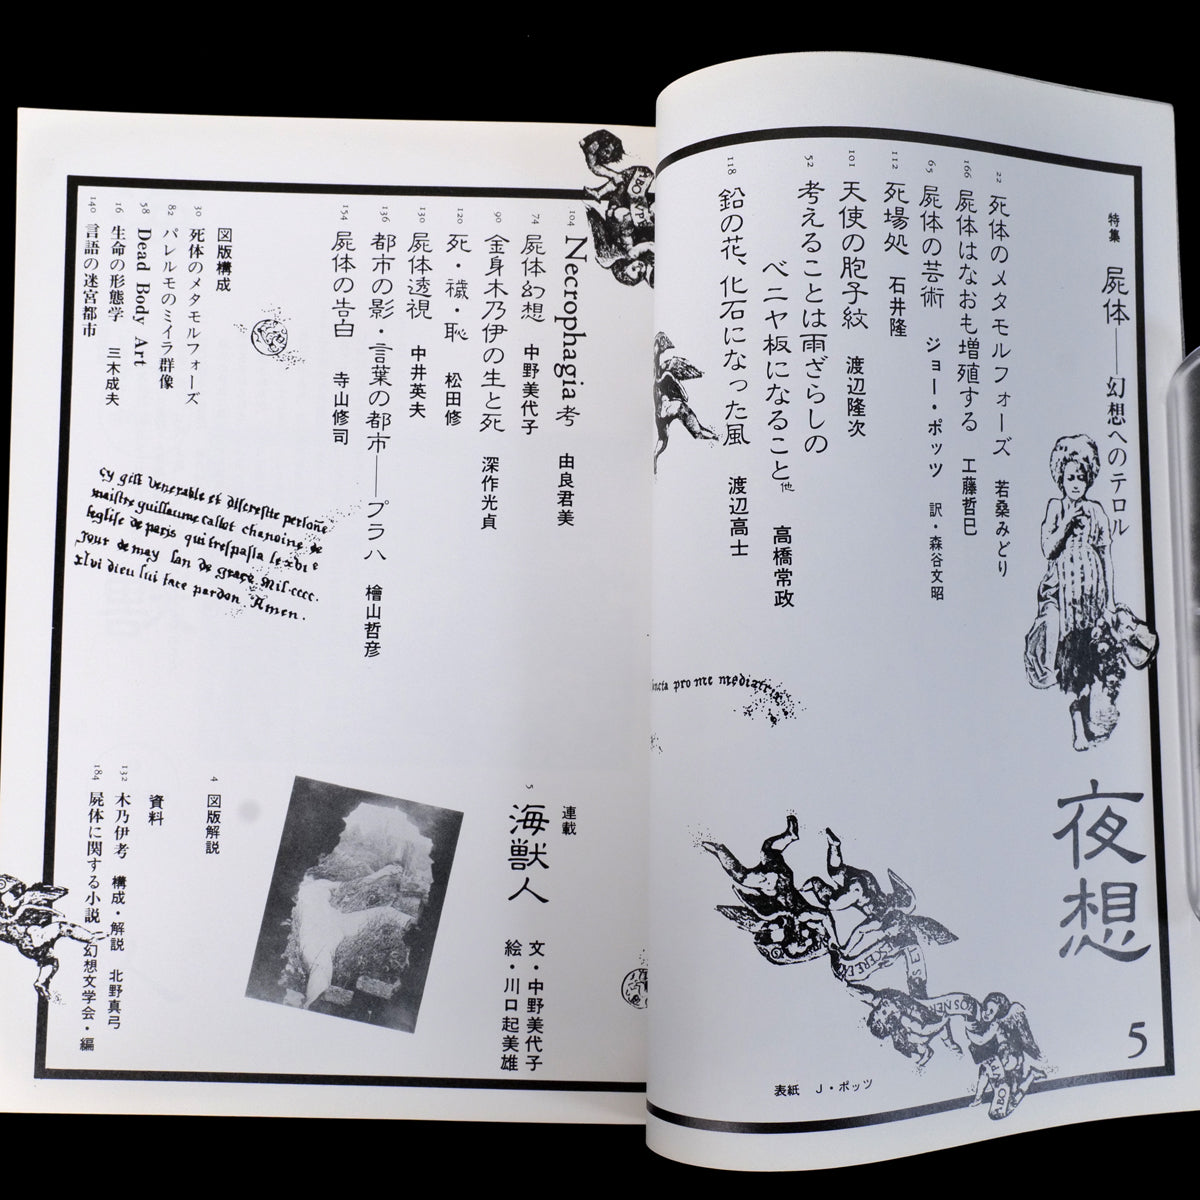 特集 屍体――幻想へのテロル
夜想
5
22 死体のメタモルフォーズ 若桑みどり
166 屍体はなおも増殖する 工藤哲巳
65 屍体の芸術 ジョー・ポッツ 訳・森谷文昭
112 死場処 石井隆
101 天使の胞子紋 渡辺隆次
52 考えることは雨ざらしの
ベニヤ板になること他 高橋常政
118 鉛の花、化石になった風 渡辺高士
pro me mediatrix
表紙 J・ポッツ
104 Necrophagia考 由良君美
74 屍体幻想 中野美代子
90 金身木乃伊の生と死 深作光貞
120 死・穢・恥 松田修
130 屍体透視 中井英夫
136 都市の影・言葉の都市――プラハ 檜山哲彦
154 屍体の告白 寺山修司
図版構成
30 死体のメタモルフォーズ
82 パレルモのミイラ群像
58 Dead Body Art
16 生命の形態学 三木成夫
140 言語の迷宮都市
Cy gist venerable et discreste persone
maistre guillaume callot chanoine de
leglise de paris qui trespassa le xdi e
Jour de may lan de grace mil.cccc.
xlvi dieu lui face pardon. Amen.
連載
5 海獣人 文・中野美代子
絵・川口起美雄
4 図版解説
資料
132 木乃伊考 構成・解説 北野真弓
184 屍体に関する小説 幻想文学会・編